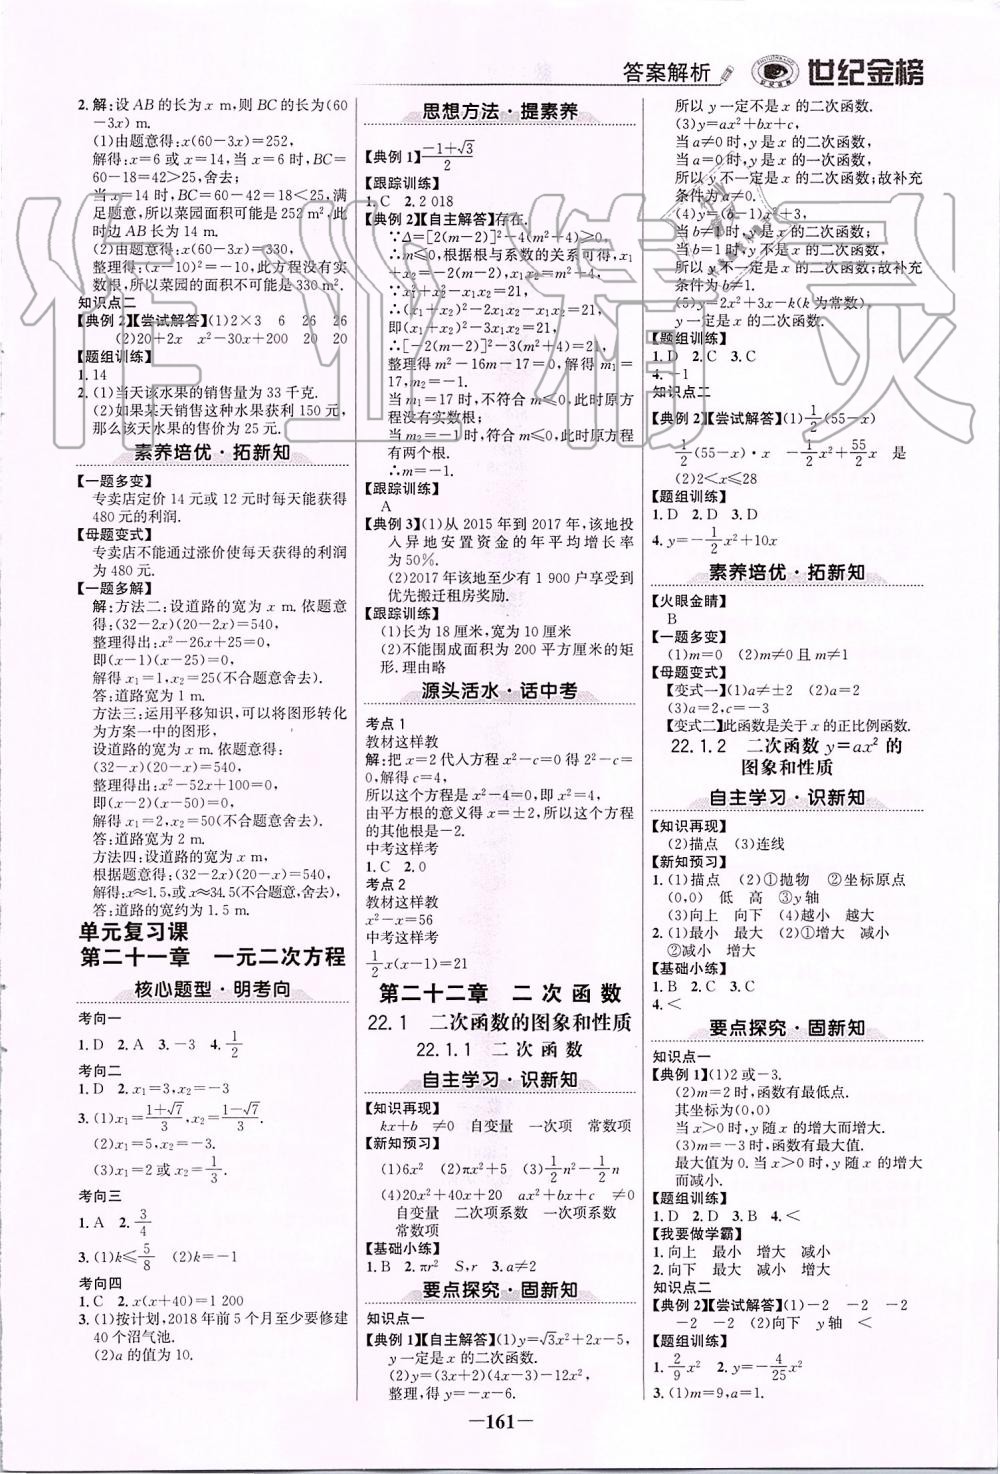 答案解析 世纪金榜
2.解:设AB的长为x m,则BC的长为(60
-3x) m.
(1)由题意得:x(60-3x)=252,
解得:x=6或x=14,当x=6时,BC=
60-18=42>25,舍去;
当x=14时,BC=60-42=18<25,满
足题意,所以菜园面积可能是252 m²,此
时边AB长为14 m.
(2)由题意得:x(60-3x)=330,
整理得:(x-10)²=-10,此方程没有实
数根,所以菜园的面积不可能是330 m².
知识点二
【典例2】【尝试解答】(1)2×3 6 26 26
(2)20+2x x²-30x+200 20 20
【题组训练】
1.14
2.(1)当天该水果的销售量为33千克.
(2)如果某天销售这种水果获利150元,
那么该天水果的售价为25元.
素养培优·拓新知
【一题多变】
专卖店定价14元或12元时每天能获得
480元的利润.
【母题变式】
专卖店不能通过涨价使每天获得的利润
为480元.
【一题多解】
解:方法二:设道路的宽为x m.依题意
得:(32-2x)(20-2x)=540,
整理得出:x²-26x+25=0,
即(x-1)(x-25)=0,
解得x₁=1,x₂=25(不合题意舍去).
答:道路宽为1 m.
方法三:运用平移知识,可以将图形转化
为方案一中的图形,
设道路的宽为x m.依题意得:
(32-x)(20-x)=540,
整理得出:x²-52x+100=0,
即(x-2)(x-50)=0,
解得x₁=2,x₂=50(不合题意舍去).
答:道路宽为2 m.
方法四:设道路的宽为x m,
根据题意得:(32-2x)(20-x)=540,
解得:x≈1.5,或x≈34.5(不合题意,舍去),
答:道路的宽约为1.5 m.
单元复习课
第二十一章 一元二次方程
核心题型·明考向
考向一
1.D 2.A 3.-3 4.1/2
考向二
1.D 2.x₁=3,x₂=-3
3.(1)x₁=(1+√7)/3,x₂=(1-√7)/3.
(2)x₁=5,x₂=-3.
(3)x₁=2或x₂=1/3.
考向三
1.A 2.3/4
3.(1)k≤5/8 (2)k=-1
考向四
1.C 2.x(x+40)=1 200
3.(1)按计划,2018年前5个月至少要修建
40个沼气池.
(2)a的值为10.
思想方法·提素养
【典例1】(-1+√3)/2
【跟踪训练】
1.C 2.2 018
【典例2】【自主解答】存在.
∵Δ=[2(m-2)]²-4(m²+4)≥0,
∴m≤0,根据根与系数的关系可得,x₁
+x₂=-2(m-2),x₁x₂=m²+4,
∵x₁²+x₂²-x₁x₂=21,
∴(x₁+x₂)²-2x₁x₂-x₁x₂=21,
即(x₁+x₂)²-3x₁x₂=21,
∴[-2(m-2)]²-3(m²+4)=21,
整理得m²-16m-17=0,解得m₁=
17,m₂=-1.
当m₁=17时,m不满足m≤0,此时原方程
没有实数根;
当m₂=-1时,m≤0,此时原方程
有两个实数根.
∴m=-1.
【跟踪训练】
A
【典例3】(1)从2015年到2017年,该地投
入异地安置资金的年平均增长率
为50%.
(2)2017年该地至少有1 900户享受到
优先搬迁租房奖励.
【跟踪训练】
(1)长为18厘米,宽为10厘米
(2)不能围成面积为200平方厘米的矩
形.理由略
源头活水·话中考
考点1
教材这样教
解:把x=2代入方程x²-c=0得2²-c=
0,解得c=4,
所以这个方程是x²-4=0,即x²=4,
由平方根的意义得x=±2,所以这个方程
的其他根是-2.
中考这样考
1.C 2.0
考点2
教材这样教
x²-x=56
中考这样考
1/2x(x-1)=21
第二十二章 二次函数
22.1 二次函数的图象和性质
22.1.1 二次函数
自主学习·识新知
【知识再现】
kx+b ≠0 自变量 一次项 常数项
【新知预习】
(1)6x² (2)πx²+5 (3)1/2n²-1/2n
(4)20x²+40x+20 ax²+bx+c ≠0
自变量 二次项系数 一次项系数
常数项
【基础小练】
1.B 2.πr² S,r 3.a≠2
要点探究·固新知
知识点一
【典例1】【自主解答】(1)y=√3x²+2x-5,
y一定是x的二次函数.
(2)y=(3x+2)(4x-3)-12x²,
整理,得y=-x-6.
所以y一定不是x的二次函数.
(3)y=ax²+bx+c,
当a≠0时,y是x的二次函数,
当a=0时,y是x的一次函数,
所以y不一定是x的二次函数;故补充
条件为a≠0.
(4)y=(b-1)x²+3,
当b≠1时,y是x的二次函数,
当b=1时,y不是x的二次函数,
所以y不一定是x的二次函数;故补充
条件为b≠1.
(5)y=2x²+3x-k(k为常数),
y一定是x的二次函数.
【题组训练】
1.D 2.C 3.C
4.-1
知识点二
【典例2】【尝试解答】(1)1/2(55-x)
1/2(55-x)·x -1/2x²+55/2x 是
(2)2<x≤28
【题组训练】
1.D 2.D 3.D
4.y=-1/2x²+10x
素养培优·拓新知
【火眼金睛】
B
【一题多变】
(1)m=0 (2)m≠0且m≠1
【母题变式】
【变式一】(1)a≠±2 (2)a=2
(3)a=2,c=-3
【变式二】此函数是关于x的正比例函数.
22.1.2 二次函数y=ax²的
图象和性质
自主学习·识新知
【知识再现】
(2)描点 (3)连线
【新知预习】
1.(1)描点 (2)①抛物 ②坐标原点
(0,0) 低 高 ③y轴
(3)向上 向下 (4)越小 越大
2.(1)最小 最大 (2)①增大 减小
②减小 增大
【基础小练】
1.B 2.C 3.C
4.<
要点探究·固新知
知识点一
【典例1】(1)2或-3.
(2)m=2时,函数有最低点.
其坐标为(0,0)
当x>0时,y随x的增大而增大.
(3)m=-3时,函数有最大值.
最大值为0.当x>0时,y随x的增大
而减小.
【题组训练】
1.D 2.D 3.B 4.<
【我要做学霸】
1.向上 最小 增大 减小
2.向下 最大 减小 增大
知识点二
【典例2】【尝试解答】(1)-2 -2 -2
-2 -2 (2)向下 y轴 <
【题组训练】
1.2/9x² 2.y=-4/25x²
3.(1)m=9,a=1.
—161—
作业精灵